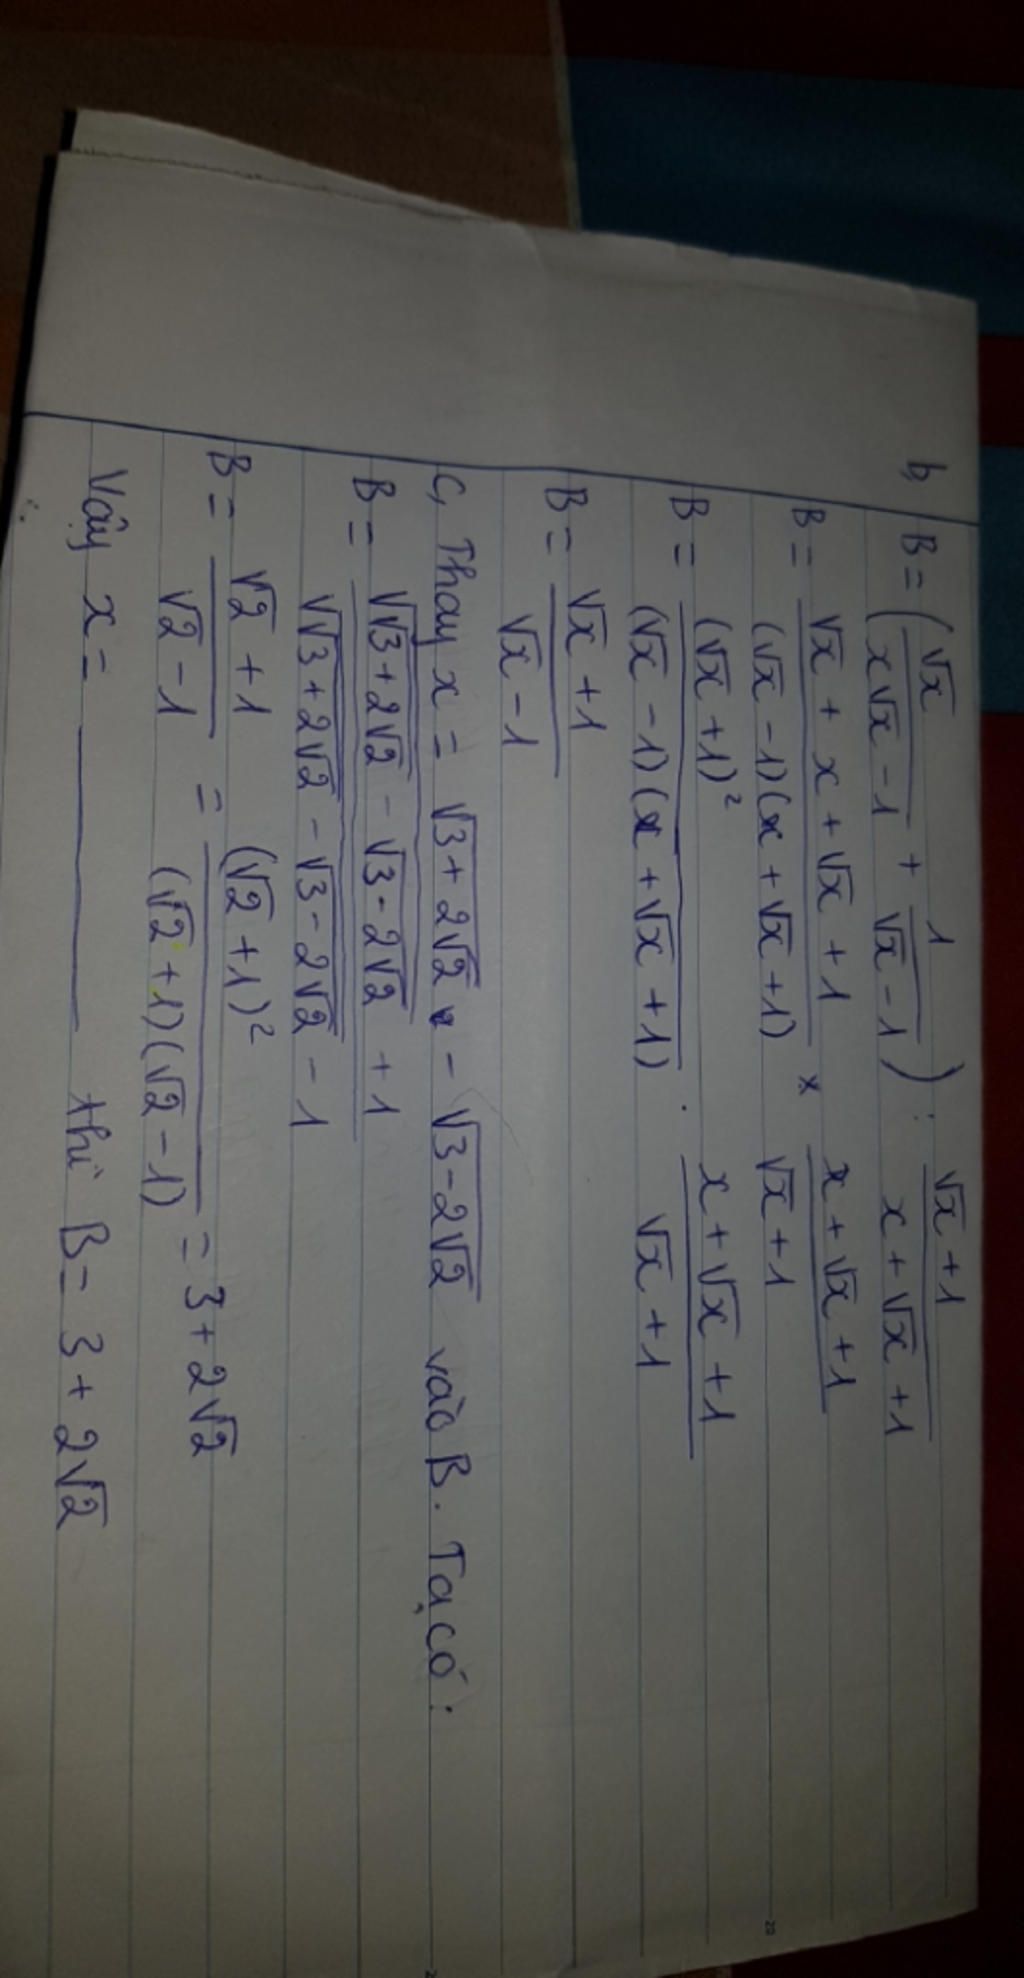 b, B = (√x / (x√x - 1) + 1 / (√x - 1)) : (√x + 1) / (x + √x + 1)
B = (√x + x + √x + 1) / ((√x - 1)(x + √x + 1)) × (x + √x + 1) / (√x + 1)
B = (√x + 1)² / ((√x - 1)(x + √x + 1)) . (x + √x + 1) / (√x + 1)
B = (√x + 1) / (√x - 1)
c, Thay x = √(3 + 2√2) - √(3 - 2√2) vào B. Ta có:
B = (√(√(3 + 2√2) - √(3 - 2√2)) + 1) / (√(√(3 + 2√2) - √(3 - 2√2)) - 1)
B = (√2 + 1) / (√2 - 1) = (√2 + 1)² / ((√2 + 1)(√2 - 1)) = 3 + 2√2
Vậy x = ______ thì B = 3 + 2√2